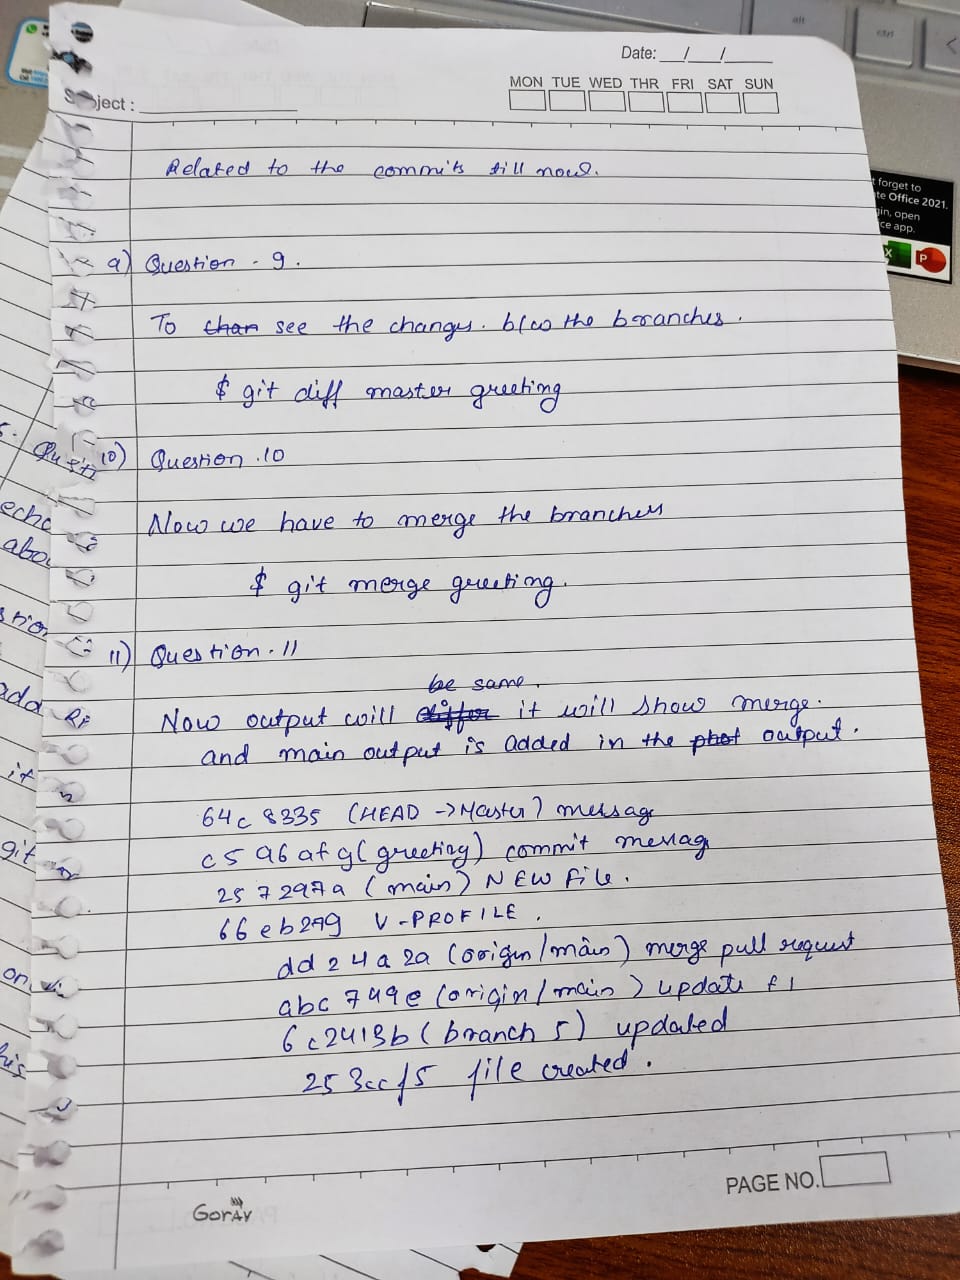 Date: __/__/____
MON TUE WED THR FRI SAT SUN
Subject :
Related to the commits till now.
9) Question - 9.
To chan see the changes. b/w the branches.
$ git diff master greeting
10) Question .10
Now we have to merge the branches
$ git merge greeting.
11) Question.11
be same.
Now output will differ it will show merge.
and main output is added in the phot output.
64c8335 (HEAD ->Master) message
c5a6afg (greeting) commit messag
257297a (main) NEW File.
66eb279 V-PROFILE.
dd24a2a (origin/main) merge pull request
abc749e (origin/main) update f1
6c2413b (branch 5) updated
253ccf5 file created.
PAGE NO.
GorAv
forget to
te Office 2021.
gin, open
ce app.
X
P
alt
ctrl
echo
abo
stion
add
it
git
on
his